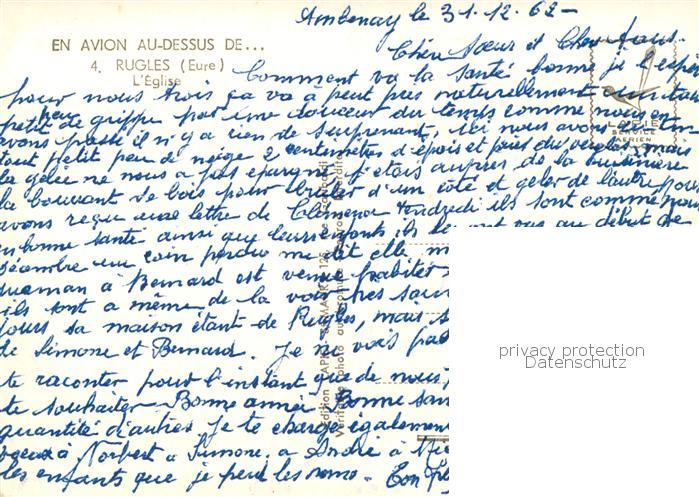 Ambenay le 31.12.62 -
EN AVION AU-DESSUS DE...
4. RUGLES (Eure)
L'Église
Chère Sœur et Cher
Comment va la santé bonne je l'espère
pour nous trois ça va à peut près naturellement un tout
petit peu de grippe par une douceur du temps comme nous en
avons passé il n'y a rien de surprenant, ici nous avons
tout petit peu de neige 2 centimètres d'épais et puis du verglas, mais
la gelée ne nous a pas épargné j'étais auprès de la cuisinière
la bourrant de bois pour brûler d'un côté et geler de l'autre, nous
avons reçu une lettre de Clémence Vendredi ils sont comme nous
en bonne santé ainsi que leurs enfants, ils au début de
décembre un coin perdu me dit elle
maman à Bernard est venue habiter
ils sont a même de la voir très
jours sa maison étant de Rugles, mais
de Simone et Bernard. Je ne vois pas
te raconter pour l'instant que de nous
te souhaiter Bonne année Bonne
quantité d'autres je te charge également
vœux à Norbert a Simone, a André à
les enfants que je perds les noms - Ton
privacy protection
Datenschutz
AÉRIEN